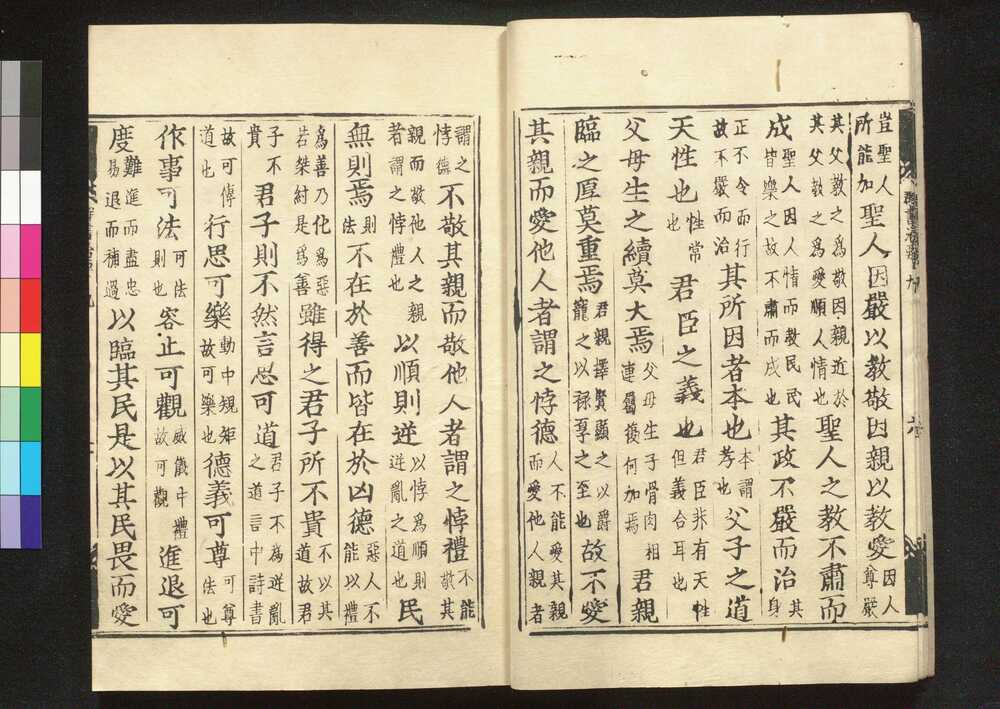 豈聖人所能加聖人因嚴以教敬因親以教愛因人尊嚴
其父教之為敬因親近於其父教之為愛順人情也聖人之教不肅而
成聖人因人情而教民民皆樂之故不肅而成也其政不嚴而治其身
正不令而行故不嚴而治其所因者本也本謂孝也父子之道
天性也性常也君臣之義也君臣非有天性但義合耳也
父母生之續莫大焉父母生子骨肉相連屬復何加焉君親
臨之厚莫重焉君親擇賢顯之以爵寵之以禄厚之至也故不愛
其親而愛他人者謂之悖德人不能愛其親而愛他人親者
謂之悖德不敬其親而敬他人者謂之悖禮不能敬其
親而敬他人之親者謂之悖禮也以順則逆以悖為順則逆亂之道也民
無則焉則法不在於善而皆在於凶德惡人不能以禮
為善乃化為惡若桀紂是為善雖得之君子所不貴不以其道故君
子不貴君子則不然言思可道君子不為逆亂之道言中詩書
故可傳道也行思可樂動中規矩故可樂也德義可尊可尊法也
作事可法可法則也容止可觀威儀中禮故可觀進退可
度難進而盡忠易退而補過以臨其民是以其民畏而愛